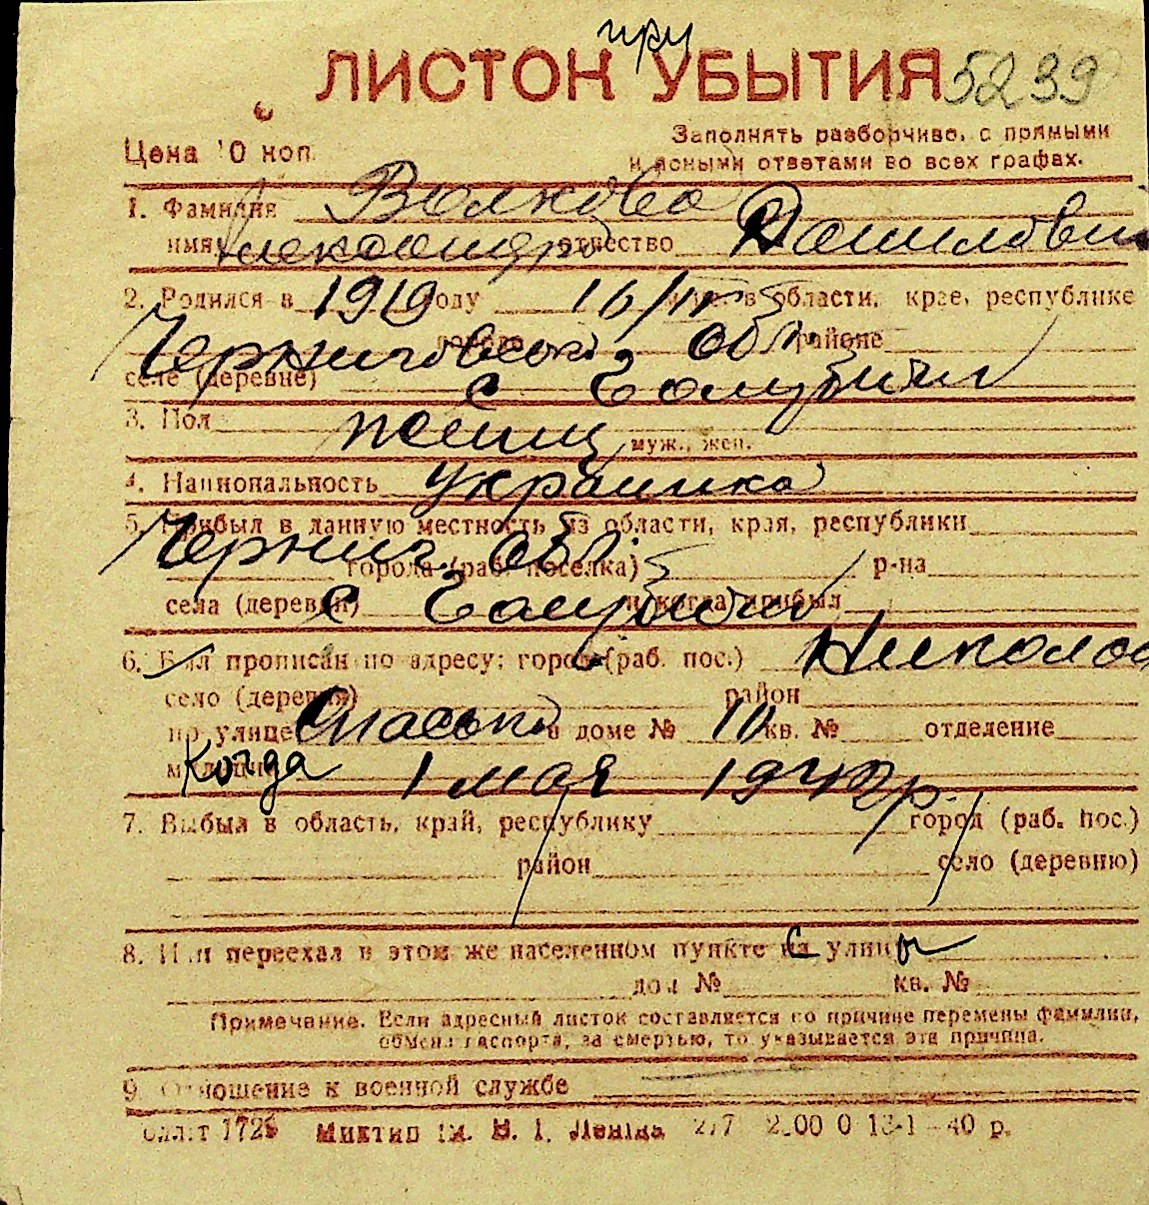 при
ЛИСТОК УБЫТИЯ 5239
Цена 10 коп.
Заполнять разборчиво, с прямыми
и ясными ответами во всех графах.
1. Фамилия Волкова
имя Александра отчество Даниловн
2. Родился в 1919 году 16/IV м-це в области, крае, республике
Черниговской обл. городе районе
селе (деревне) с Голубичи
3. Пол женщ муж., жен.
4. Национальность украинка
5. Прибыл в данную местность из области, края, республики
Черниг. обл. города (раб. поселка) р-на
села (деревни) с Голубичи и когда прибыл
6. Был прописан по адресу: город (раб. пос.) Николаев
село (деревня) район
по улице Спасской в доме № 10 кв. № отделение
милиции Когда 1 мая 1942 р.
7. Выбыл в область, край, республику город (раб. пос.)
район село (деревню)
8. Или переехал в этом же населенном пункте с улицы
дом № кв. №
Примечание. Если адресный листок составляется по причине перемены фамилии,
обмена паспорта, за смертью, то указывается эта причина.
9. Отношение к военной службе
Миктип им. В. І. Леніна 40 р.